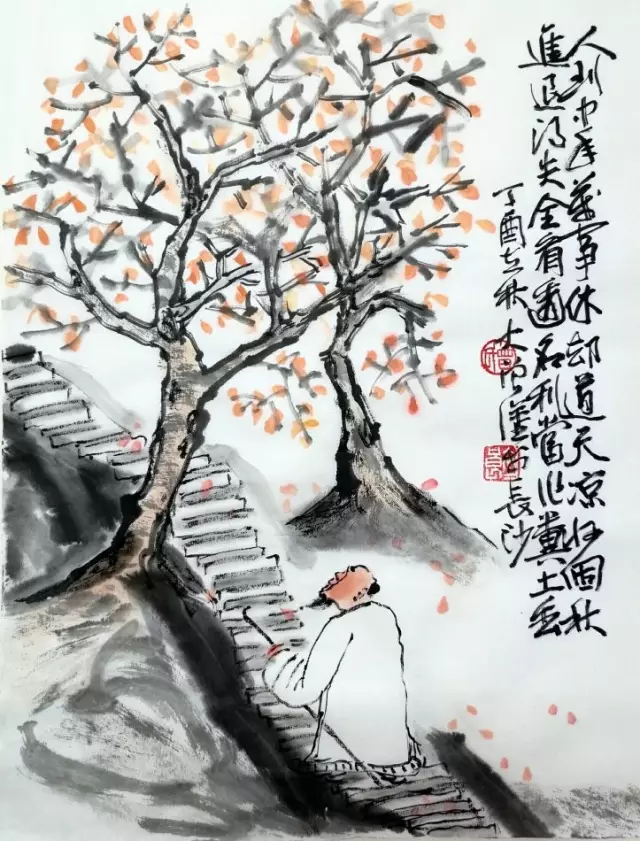 人到中年萬事休却道天凉好個秋
進退得失全看透名利當作糞土丢
丁酉秋大於長沙